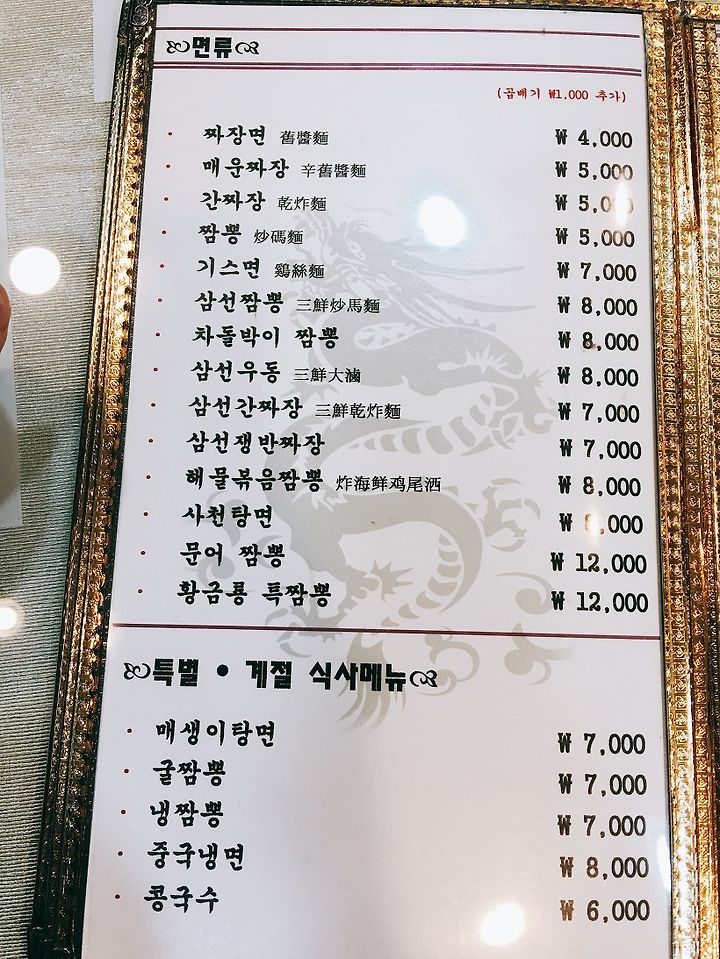 면류
(곱배기 ₩1,000 추가)
짜장면 舊醬麵 ₩ 4,000
매운짜장 辛舊醬麵 ₩ 5,000
간짜장 乾炸麵
짬뽕 炒碼麵 ₩ 5,000
기스면 鷄絲麵 ₩ 7,000
삼선짬뽕 三鮮炒馬麵 ₩ 8,000
차돌박이 짬뽕 ₩ 8,000
삼선우동 三鮮大滷 ₩ 8,000
삼선간짜장 三鮮乾炸麵 ₩ 7,000
삼선쟁반짜장 ₩ 7,000
해물볶음짬뽕 炸海鲜鸡尾酒 ₩ 8,000
사천탕면
문어 짬뽕 ₩ 12,000
황금룡 특짬뽕 ₩ 12,000
특별 • 계절 식사메뉴
매생이탕면 ₩ 7,000
굴짬뽕 ₩ 7,000
냉짬뽕 ₩ 7,000
중국냉면 ₩ 8,000
콩국수 ₩ 6,000